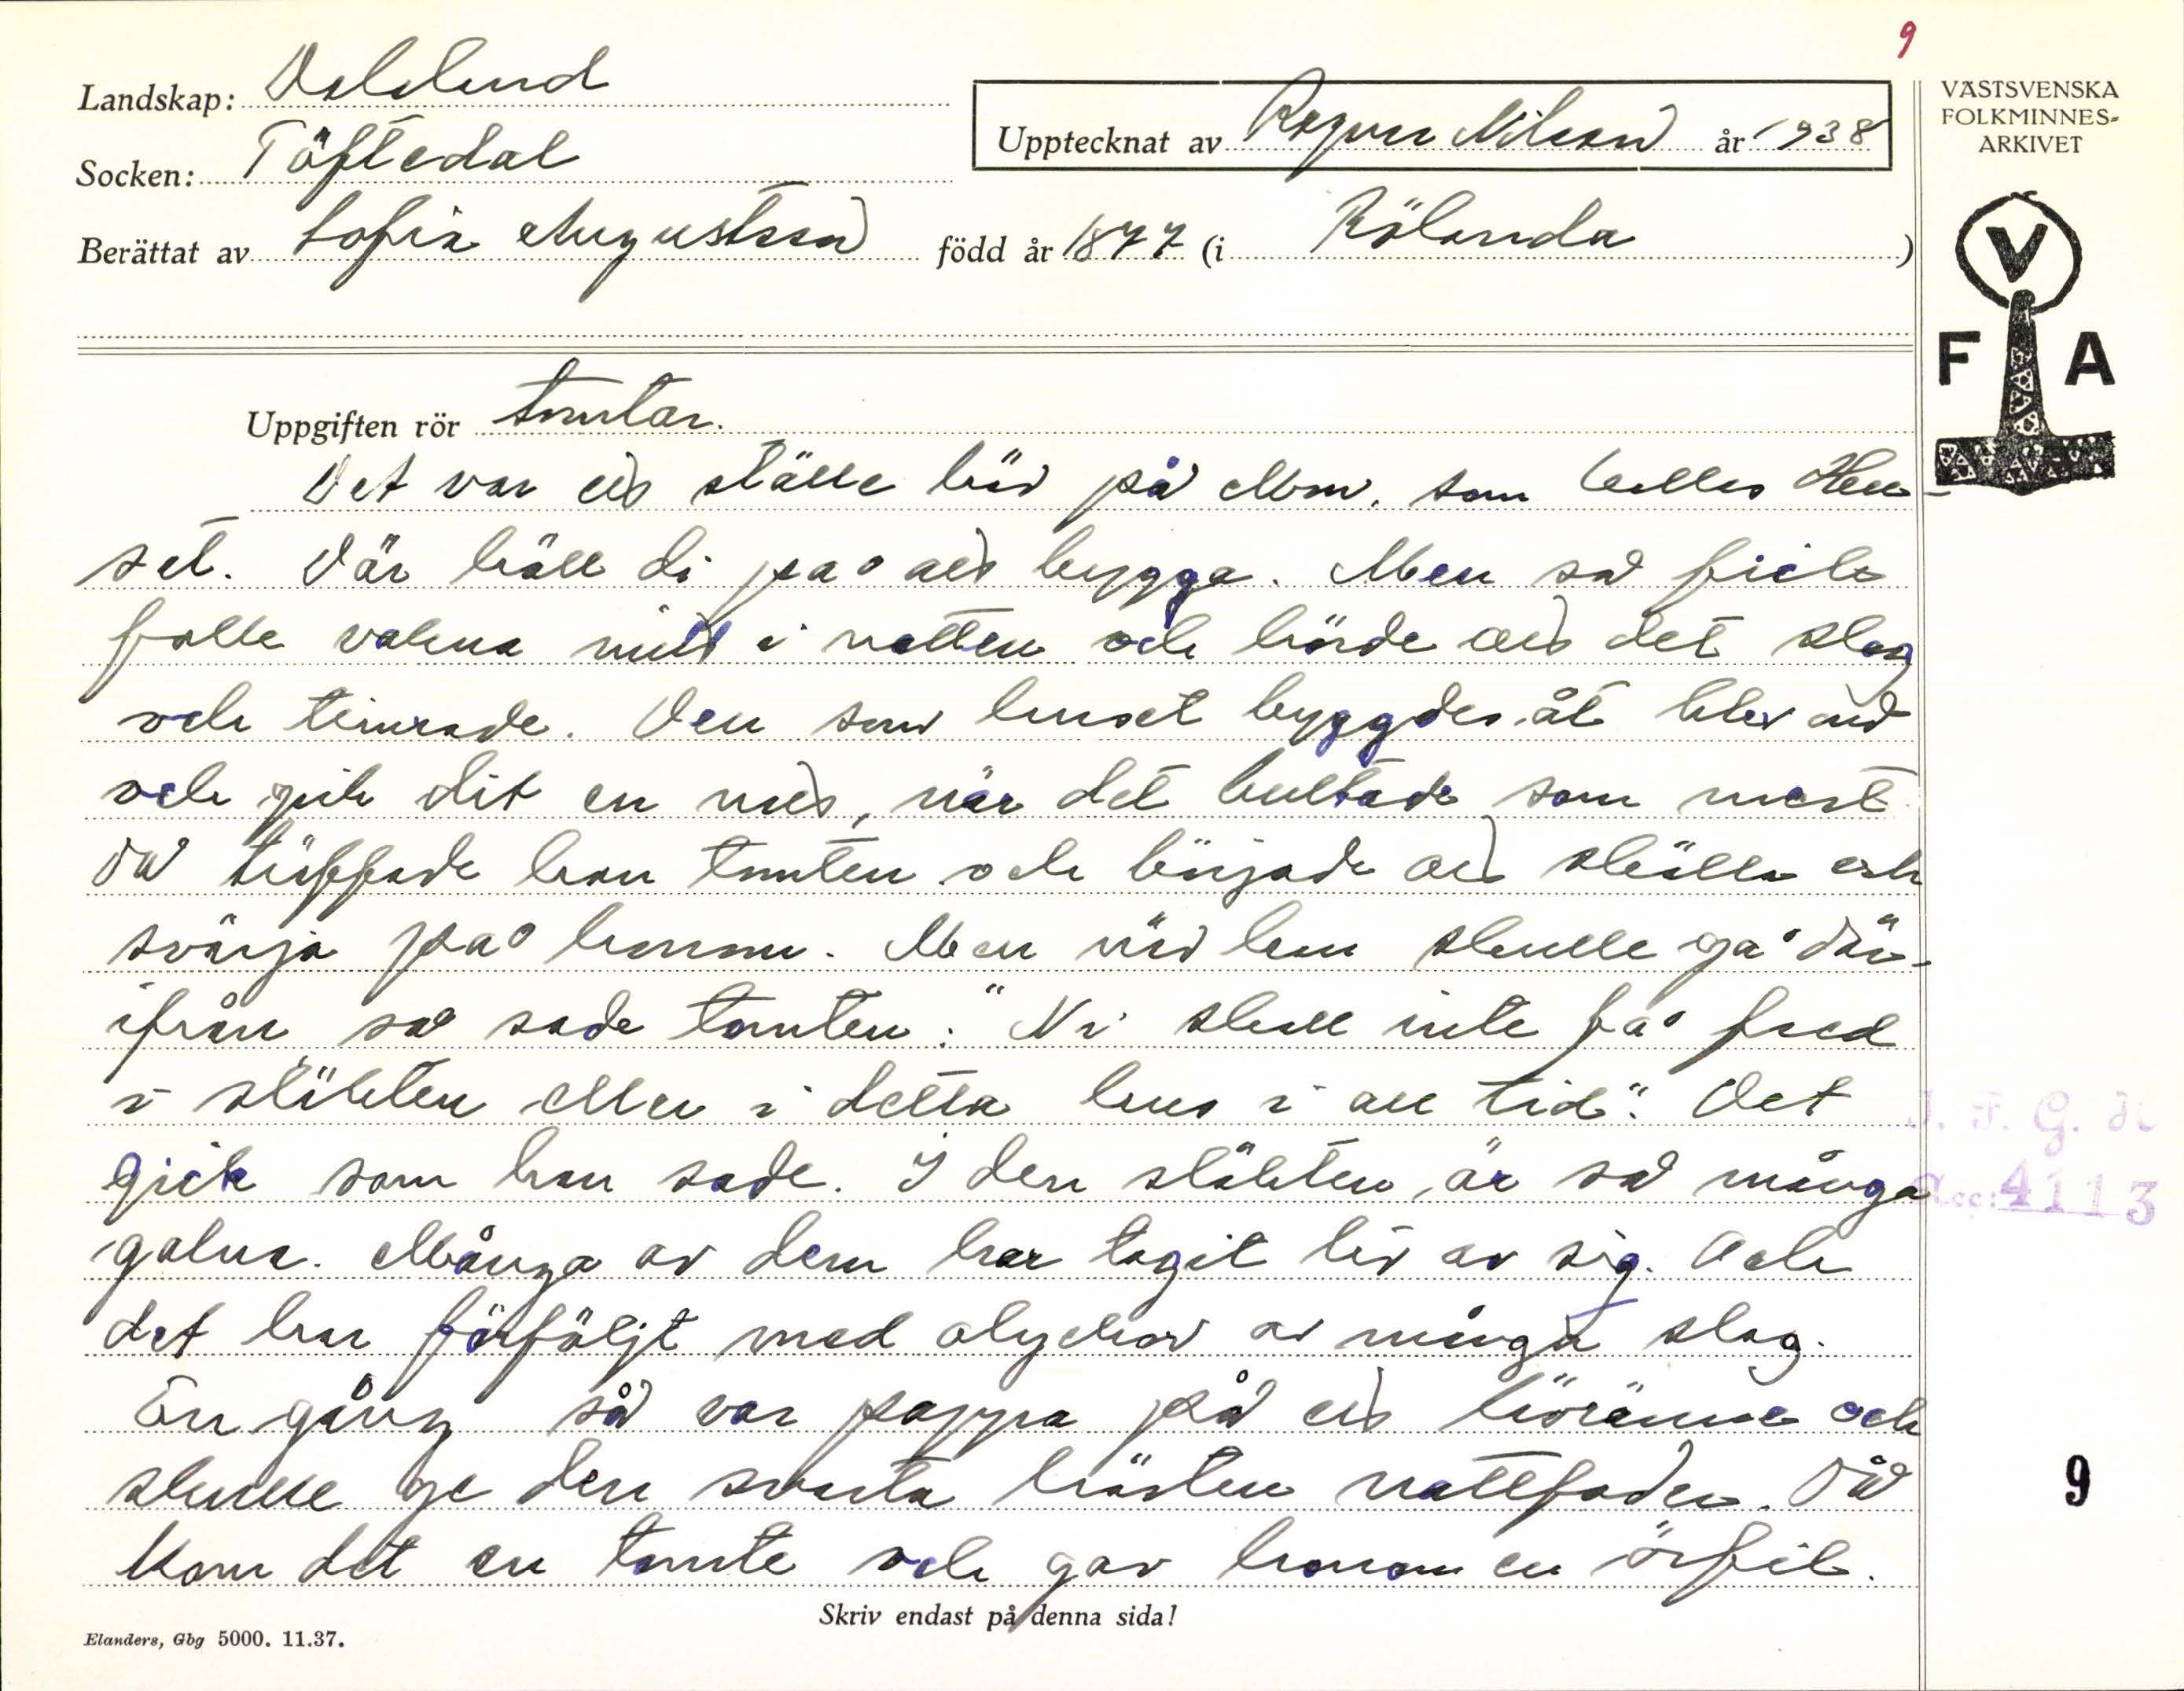 9
Landskap: Dalsland
Socken: Töftedal
Upptecknat av Ragnar Nilsson år 1938
Berättat av Sofia Augustsson född år 1877 (i Rölanda)
VÄSTSVENSKA
FOLKMINNES-
ARKIVET
V
F A
Uppgiften rör tomtar.
Det var ett ställe här på Mon, som kallas
set. Där höll di på att bygga. Men så fick
folk vakna mitt i natten och hörde att det slog
och timrade. Den som huset byggdes åt blev ond
och gick dit en natt, när det bultade som mest
Då träffade han tomten och började att skälla och
svärja på honom. Men när han skulle gå där-
ifrån så sade tomten: "Ni skall inte få fred
i släkten eller i detta hus i all tid". Det
gick som han sade. I den släkten är så många
galna. Många av dem har tagit liv av sig. Och
det har förföljt med olyckor av många slag.
En gång så var pappa på ett och
skulle ge den svarta hästen nattfoder. Då
kom det en tomte och gav honom en örfil.
I. F. G. H
Acc: 4113
9
Skriv endast på denna sida!
Elanders, Gbg 5000. 11.37.